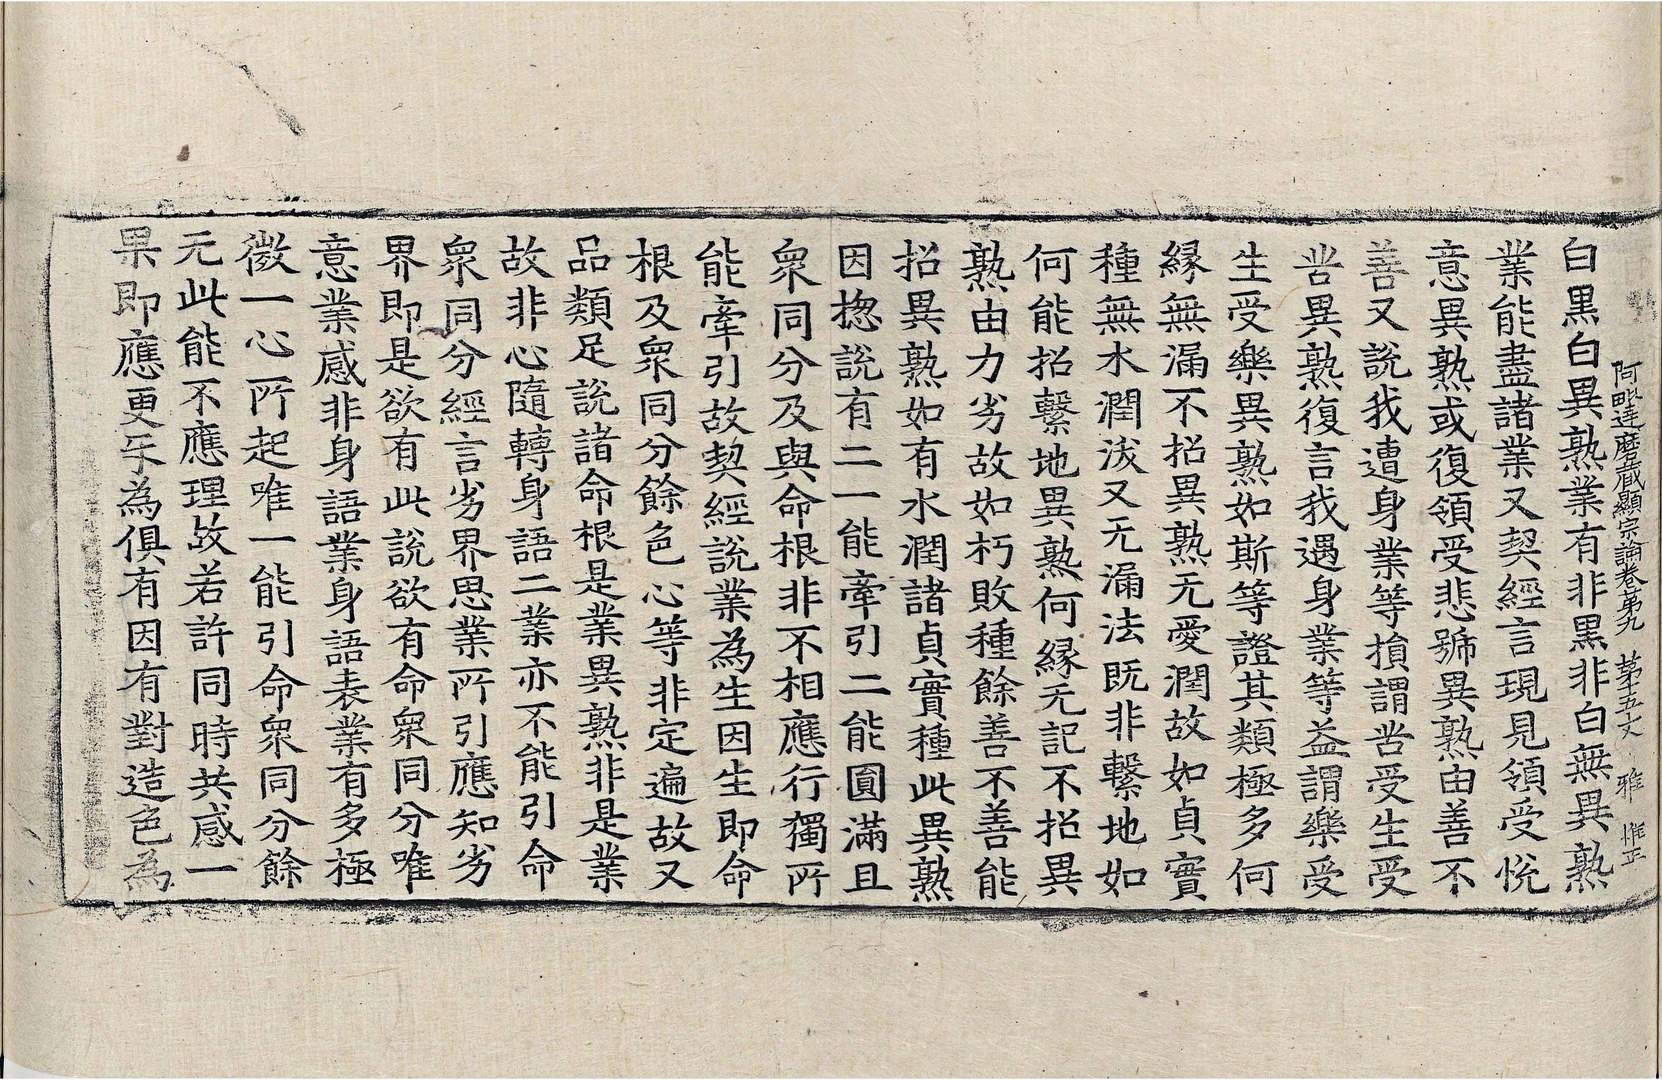 阿毗達磨藏顯宗論卷第九　第五丈　雅　惟正
白黒白異熟業有非黒非白無異熟
業能盡諸業又契經言現見領受悅
意異熟或復領受悲號異熟由善不
善又說我遭身業等損謂苦受生受
苦異熟復言我遇身業等益謂樂受
生受樂異熟如斯等證其類極多何
縁無漏不招異熟无愛潤故如貞實
種無水潤沃又无漏法既非繫地如
何能招繫地異熟何縁无記不招異
熟由力劣故如朽敗種餘善不善能
招異熟如有水潤諸貞實種此異熟
因揔說有二一能牽引二能圓滿且
衆同分及與命根非不相應行獨所
能牽引故契經說業為生因生即命
根及衆同分餘色心等非定遍故又
品類足說諸命根是業異熟非是業
故非心隨轉身語二業亦不能引命
衆同分經言劣界思業所引應知劣
界即是欲有此說欲有命衆同分唯
意業感非身語業身語表業有多極
微一心所起唯一能引命衆同分餘
无此能不應理故若許同時共感一
果即應更㸦為俱有因有對造色為